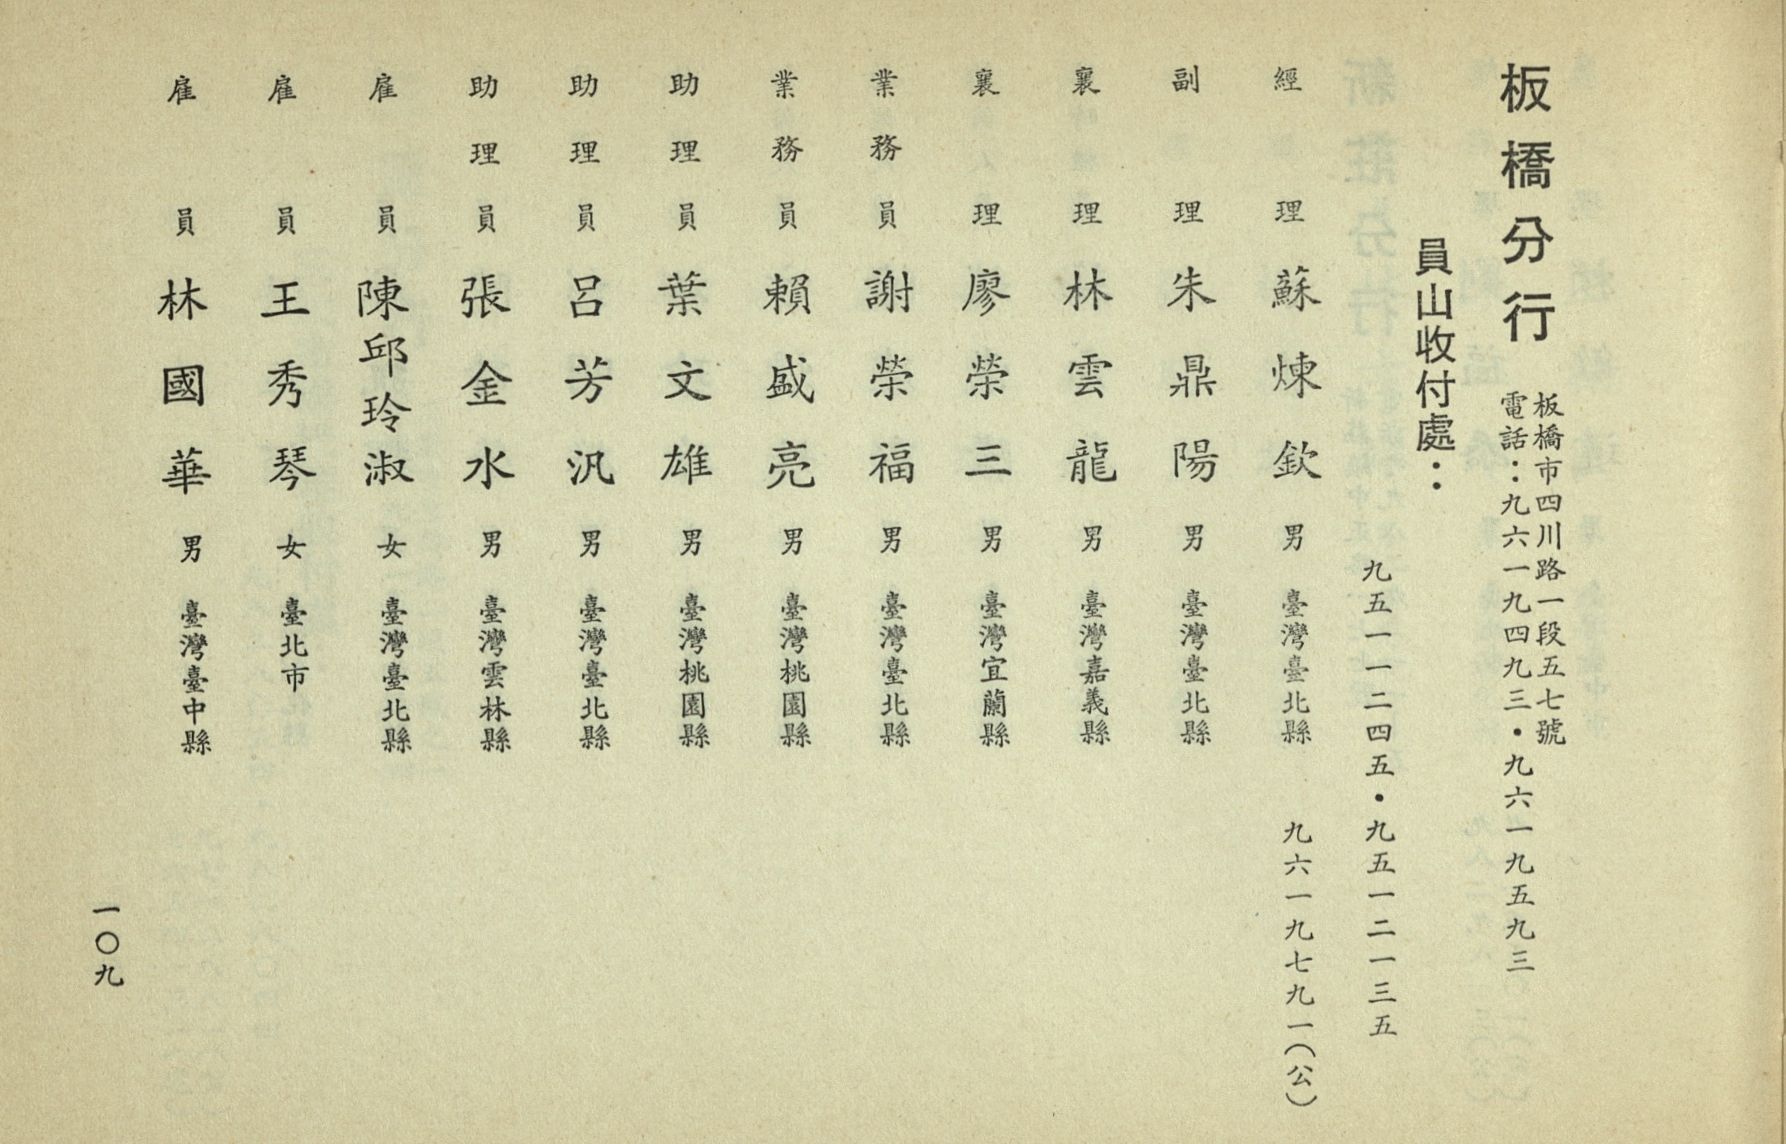 板橋分行
板橋市四川路一段五七號
電話：九六一九四九三・九六一九五九三
員山收付處：
九五一一二四五・九五一二一三五
經理 蘇煉欽 男 臺灣臺北縣 九六一九七九一（公）
副理 朱鼎陽 男 臺灣臺北縣
襄理 林雲龍 男 臺灣嘉義縣
襄理 廖榮三 男 臺灣宜蘭縣
業務員 謝榮福 男 臺灣臺北縣
業務員 賴盛亮 男 臺灣桃園縣
助理員 葉文雄 男 臺灣桃園縣
助理員 呂芳汎 男 臺灣臺北縣
助理員 張金水 男 臺灣雲林縣
雇員 陳邱玲淑 女 臺灣臺北縣
雇員 王秀琴 女 臺北市
雇員 林國華 男 臺灣臺中縣
一〇九